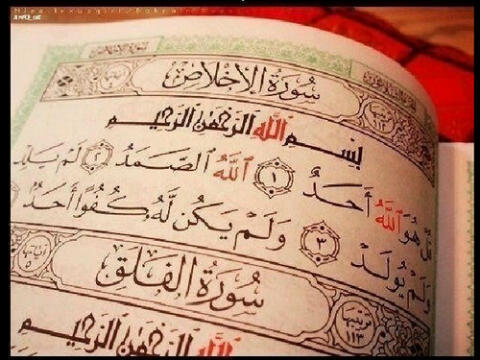 سُورَةُ الإِخْلَاصِ
بِسْمِ ٱللَّهِ ٱلرَّحْمَٰنِ ٱلرَّحِيمِ
قُلْ هُوَ ٱللَّهُ أَحَدٌ ١ ٱللَّهُ ٱلصَّمَدُ ٢ لَمْ يَلِدْ
وَلَمْ يُولَدْ ٣ وَلَمْ يَكُن لَّهُۥ كُفُوًا أَحَدٌ
سُورَةُ الفَلَقِ
ترتيبها ١١٣
بِسْمِ ٱللَّهِ ٱلرَّحْمَٰنِ ٱلرَّحِيمِ